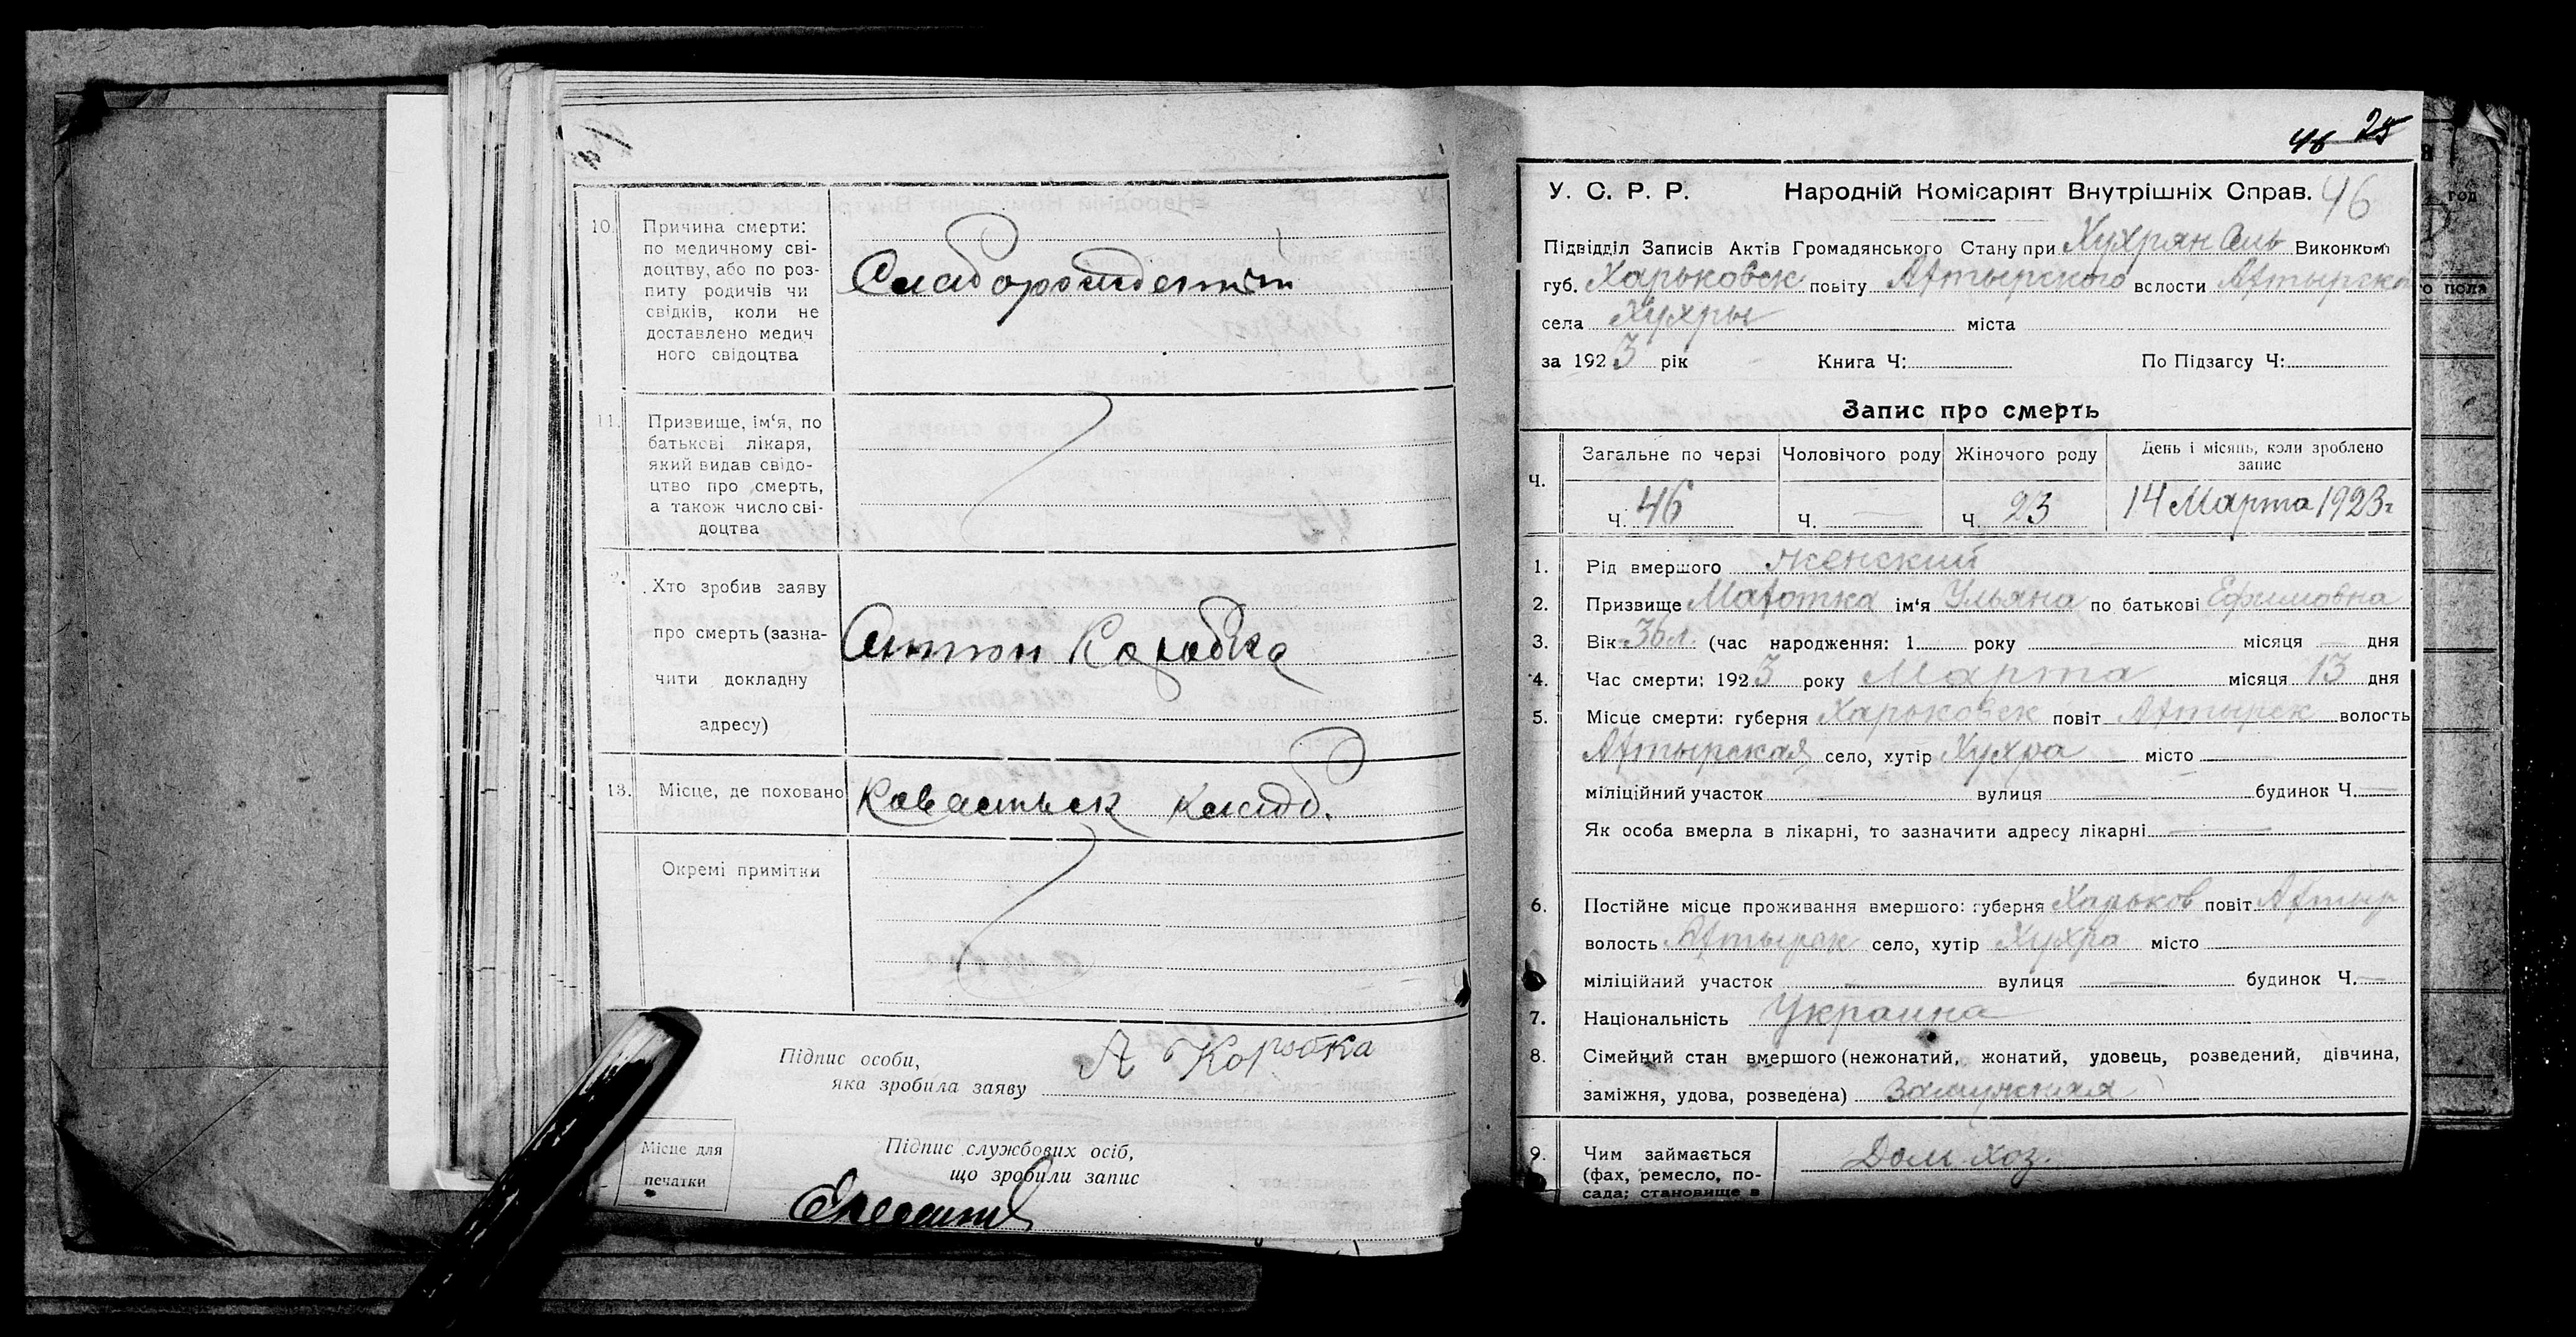 10. Причина смерти:
по медичному сві-
доцтву, або по роз-
питу родичів чи
свідків, коли не
доставлено медич
ного свідоцтва
11. Призвище, ім‘я, по
батькові лікаря,
який видав свідо-
цтво про смерть,
а також число сві-
доцтва
Хто зробив заяву
про смерть (зазна-
чити докладну
адресу)
Антон Коробка
13. Місце, де поховано
кладб.
Окремі примітки
Підпис особи,
яка зробила заяву А Коробка
Місце для
печатки
Підпис службових осіб,
що зробили запис
46 25
У. С. Р. Р. Народній Комісаріят Внутрішніх Справ. 46
Підвідділ Записів Актів Громадянського Стану при Хухрян Сель Виконком
губ. Харьковск повіту Ахтырского волости Ахтырско
села Хухры міста
за 1923 рік Книга Ч: По Підзагсу Ч:
Запис про смерть
Ч. Загальне по черзі Чоловічого роду Жіночого роду День і місяць, коли зроблено
запис
Ч. 46 Ч. — Ч. 23 14 Марта 1923г
1. Рід вмершого женский
2. Призвище ім‘я Ульяна по батькові Ефимовна
3. Вік 36 л. (час народження: 1 року місяця — дня
4. Час смерти: 1923 року Марта місяця 13 дня
5. Місце смерти: губерня Харьковск повіт Ахтырск волость
Ахтырская село, хутір Хухра місто —
міліційний участок — вулиця — будинок Ч. —
Як особа вмерла в лікарні, то зазначити адресу лікарні —
6. Постійне місце проживання вмершого: губерня Харьков повіт Ахтыр
волость Ахтырск село, хутір Хухра місто
міліційний участок — вулиця — будинок Ч. —
7. Національність Украина
8. Сімейний стан вмершого (нежонатий, жонатий, удовець, розведений, дівчина,
заміжня, удова, розведена) Замужняя
9. Чим займається Дом. хоз.
(фах, ремесло, по-
сада; становище в